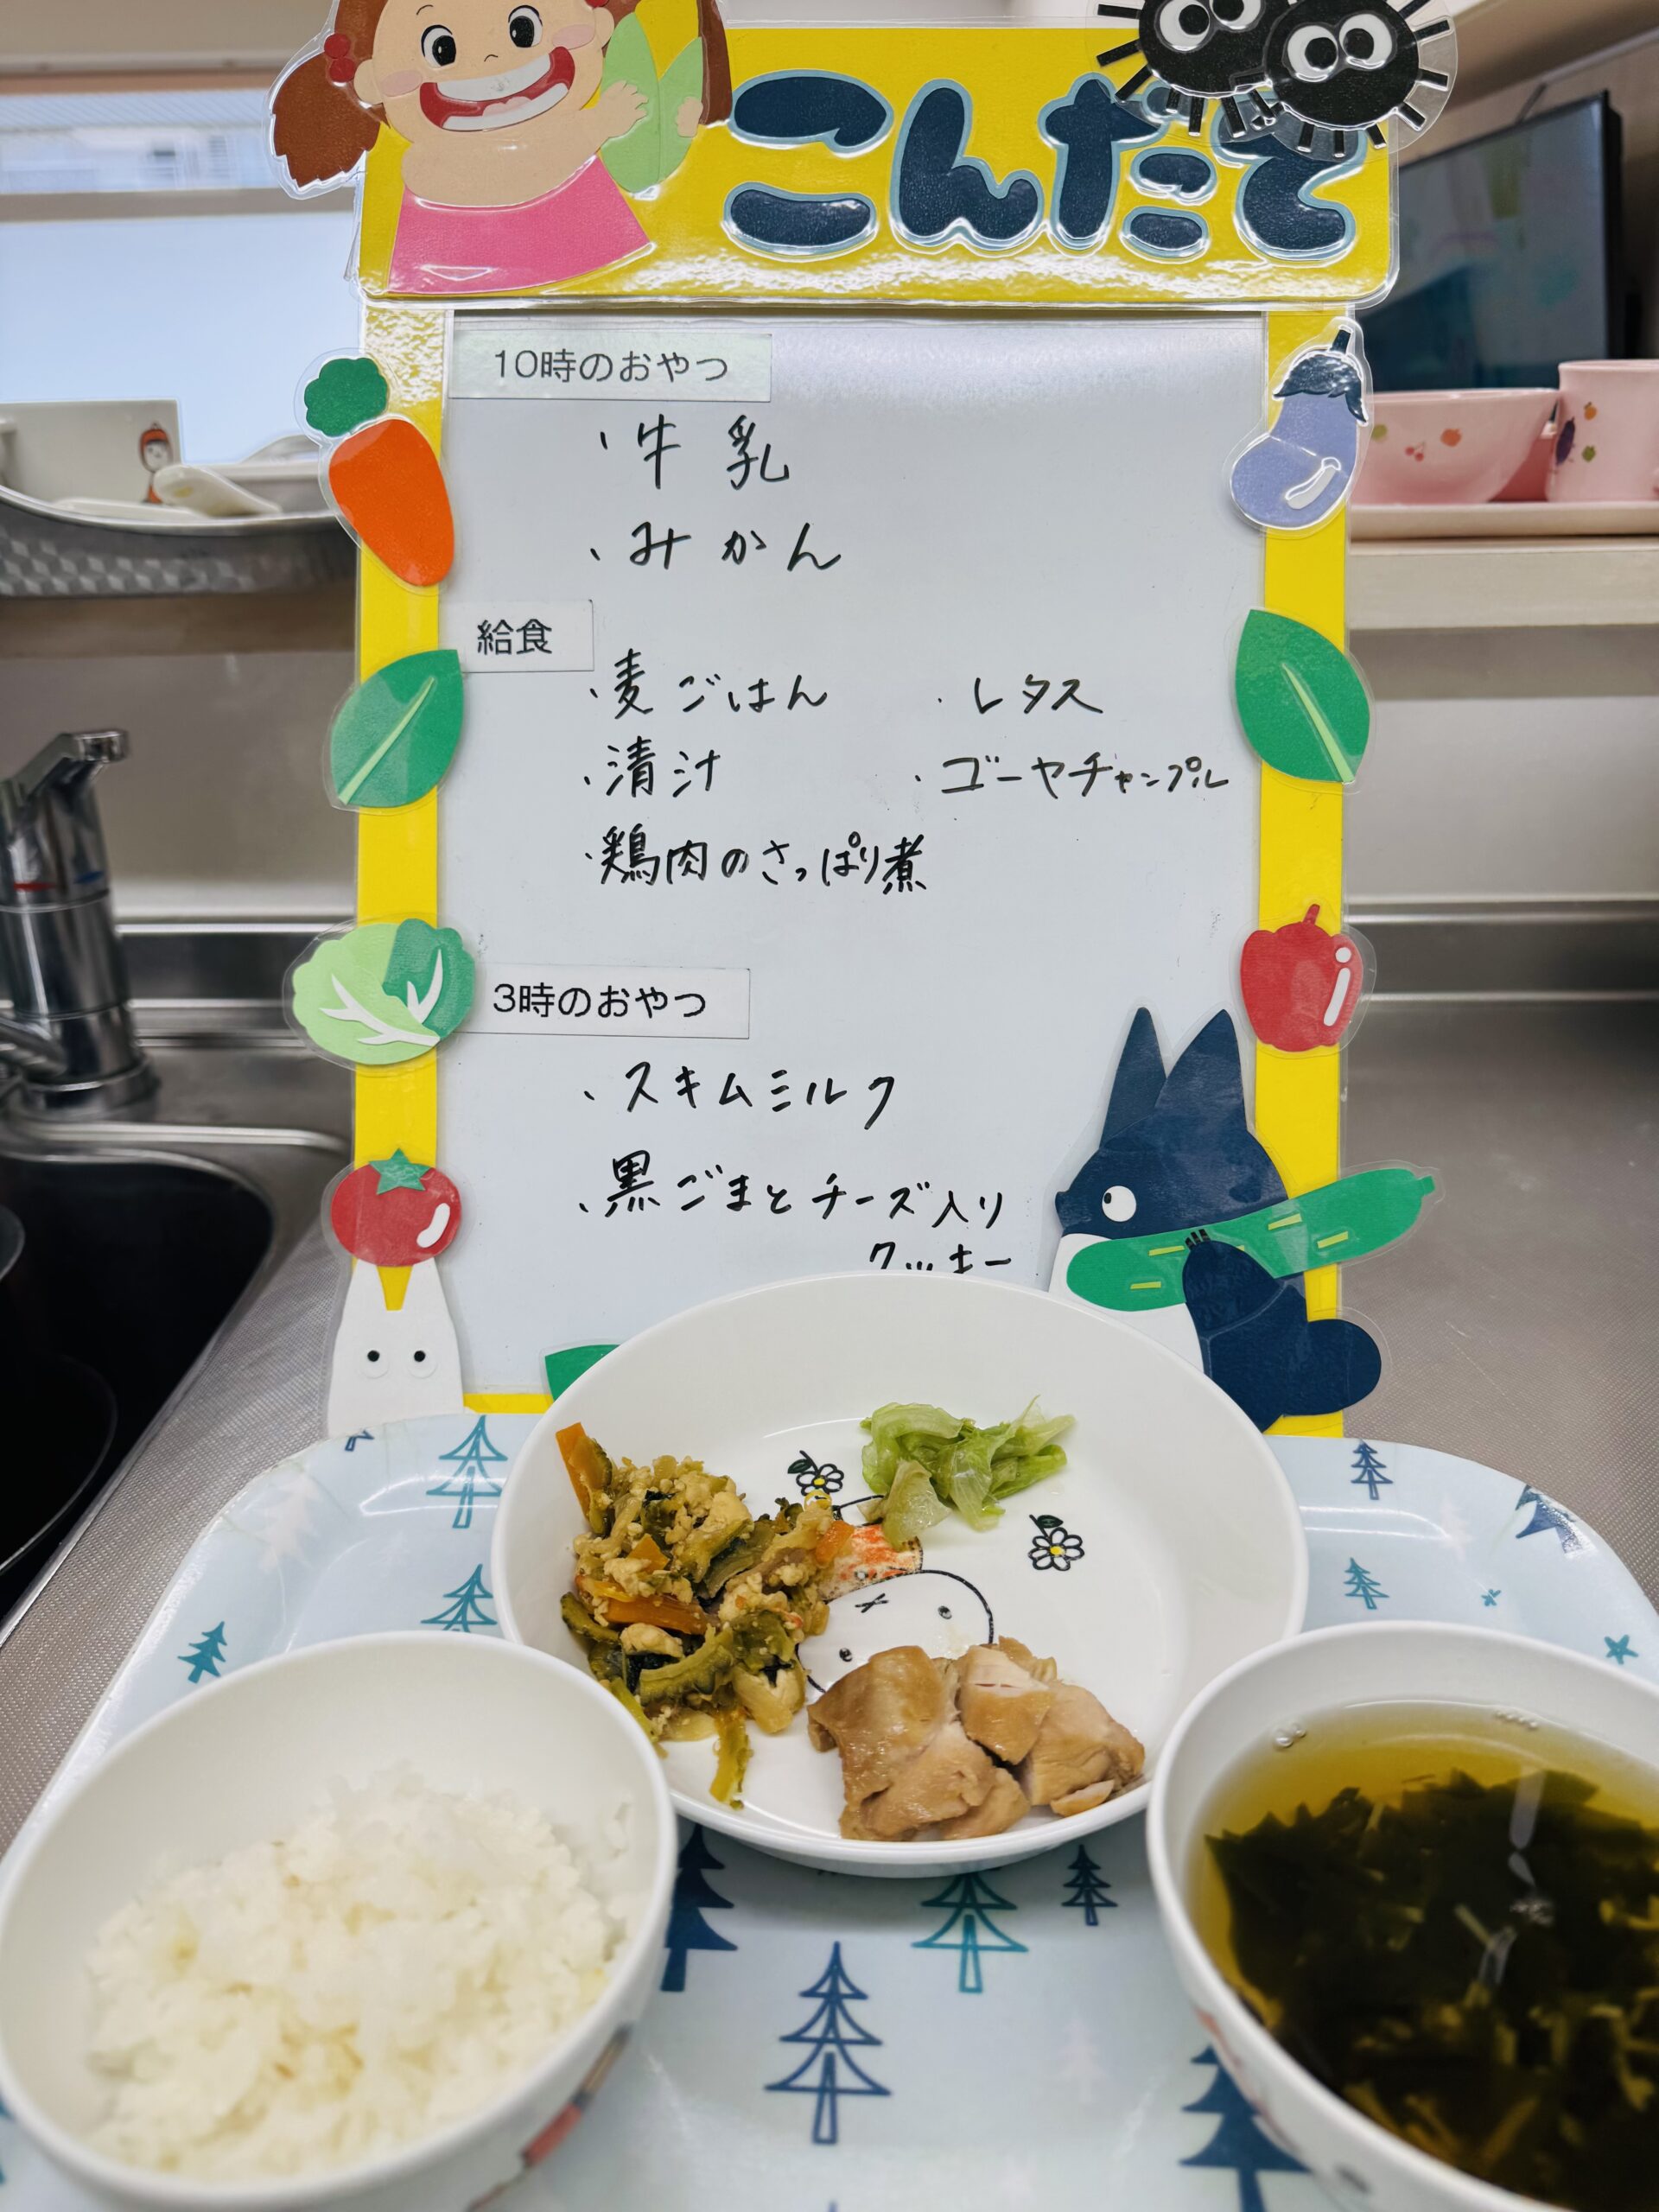 こんだて
10時のおやつ
・牛乳
・みかん
給食
・麦ごはん ・レタス
・清汁 ・ゴーヤチャンプル
・鶏肉のさっぱり煮
3時のおやつ
・スキムミルク
・黒ごまとチーズ入り
クッキー